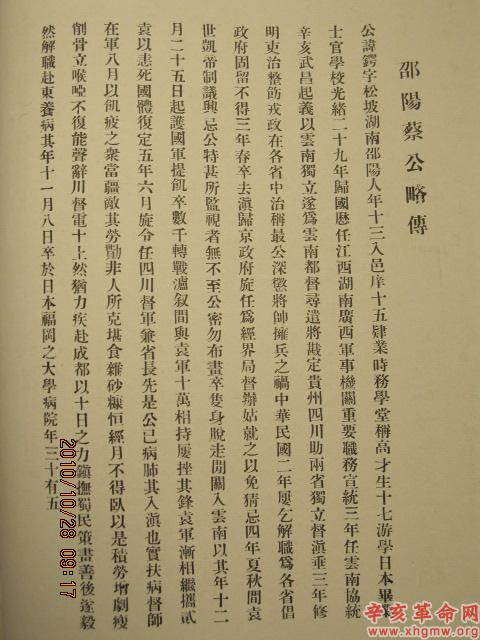 邵陽蔡公略傳
公諱鍔字松坡湖南邵陽人年十三入邑庠十五肄業時務學堂稱高才生十七游學日本畢業
士官學校光緒二十九年歸國歷任江西湖南廣西軍事機關重要職務宣統三年任雲南協統
辛亥武昌起義以雲南獨立遂爲雲南都督尋遣將戡定貴州四川助兩省獨立督滇垂三年修
明吏治整飭戎政在各省中治稱最公深懲將帥擁兵之禍中華民國二年屢乞解職爲各省倡
政府固留不得三年春卒去滇歸京政府旋任爲經界局督辦姑就之以免猜忌四年夏秋間袁
世凱帝制議興忌公特甚所監視者無不至公密勿布畫卒隻身脫走間關入雲南以其年十二
月二十五日起護國軍提飢卒數千轉戰瀘叙間與袁軍十萬相持屢挫其鋒袁軍漸相繼攜貳
袁以恚死國體復定五年六月旋令任四川督軍兼省長先是公已病肺其入滇也實扶病督師
在軍八月以飢疲之衆當疆敵其勞勩非人所克堪食雜砂糠恒經月不得臥以是積勞增劇瘦
削骨立喉啞不復能聲辭川督電十上然猶力疾赴成都以十日之力鎭撫蜀民策畫善後遂毅
然解職赴東養病其年十一月八日卒於日本福岡之大學病院年三十有五
2010/10/28 09:17
辛亥革命网
www.xhgmw.org